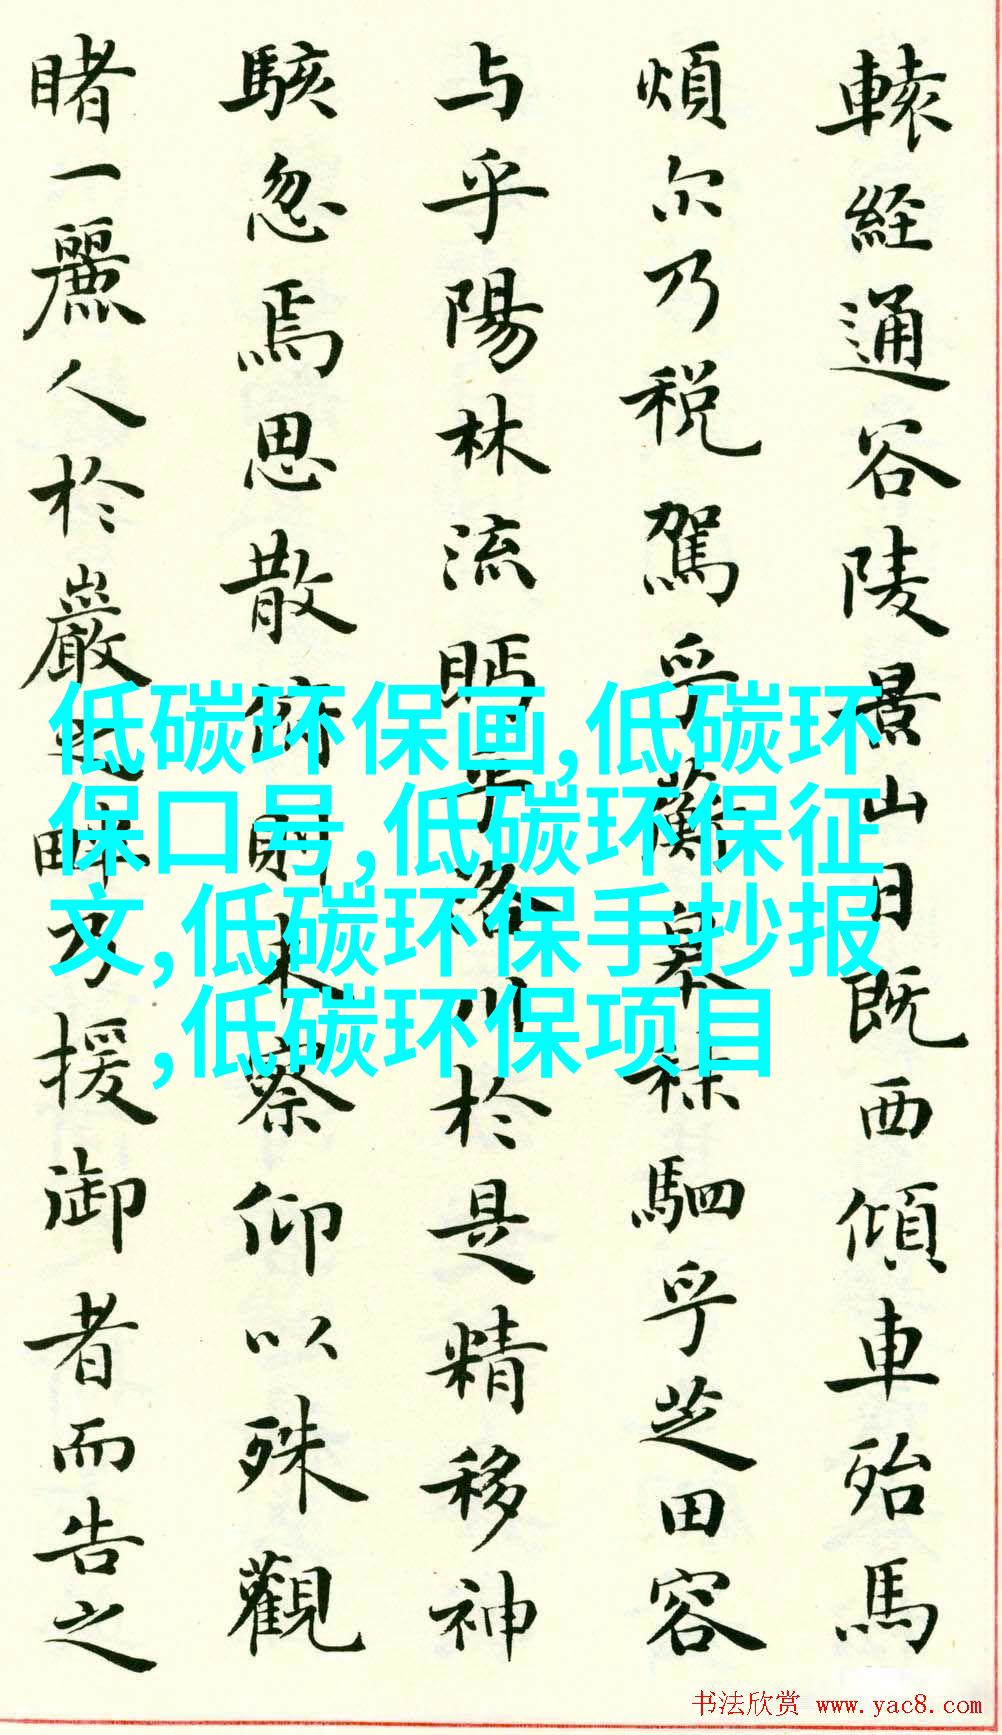 轅経通谷陵景山日既西傾車殆馬
煩尔乃税駕乎蘅皋秣駟乎芝田容
与乎陽林流眄乎洛川於是精移神
駭忽焉思散俯則未察仰以殊觀
睹一麗人於巖之畔乃援御者而告之
低碳环保画,低碳环
保口号,低碳环保征
文,低碳环保手抄报
,低碳环保项目
书法欣赏 www.yac8.com